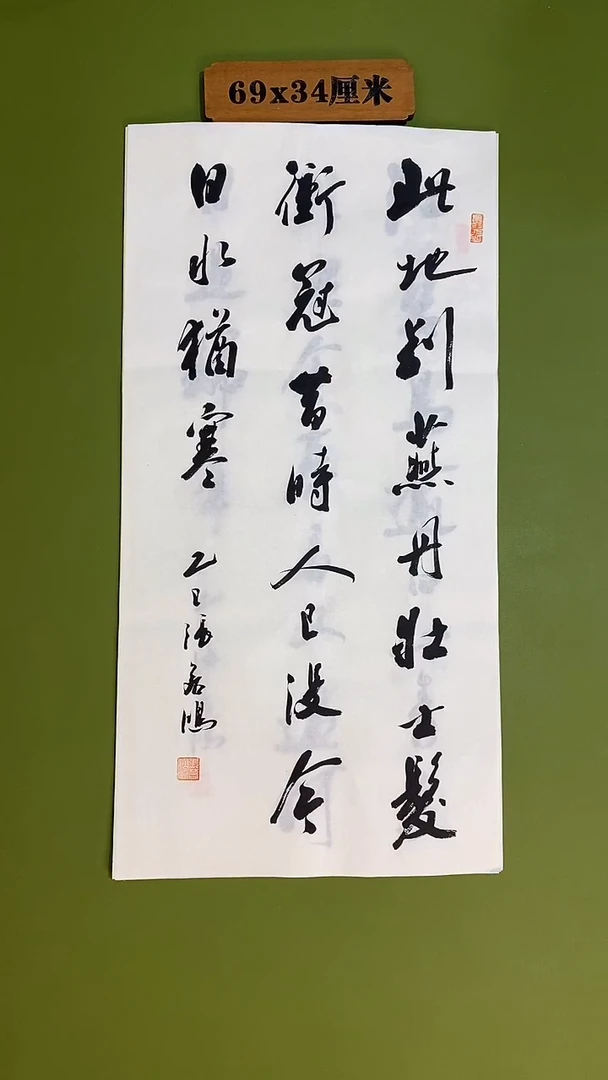 69x34厘米
此地别燕丹壮士髮
衝冠昔時人已没今
日水猶寒
乙巳